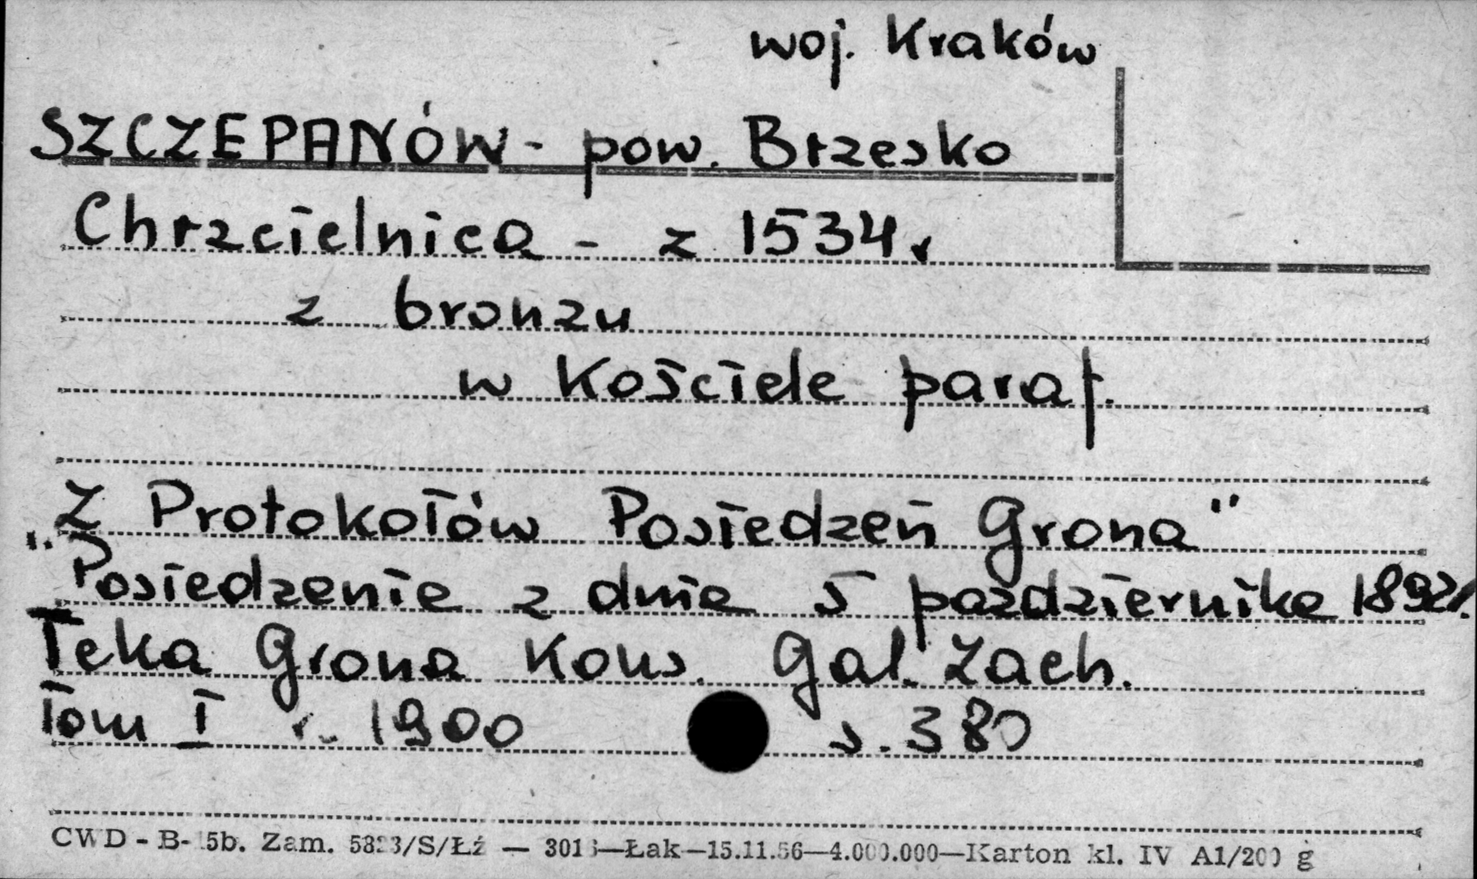 woj. Kraków
SZCZEPANÓW - pow. Brzesko
Chrzcielnica - z 1534 r
z bronzu
w Kościele paraf.
„Z Protokołów Posiedzeń Grona"
Posiedzenie z dnia 5 października 1892r.
Teka Grona Kons. Gal. Zach.
Tom I r. 1900 s. 380
CWD - B- 5b. Zam. /S/Łź — —Łak—15.11.56—4.000.000—Karton kl. IV A1/200 g